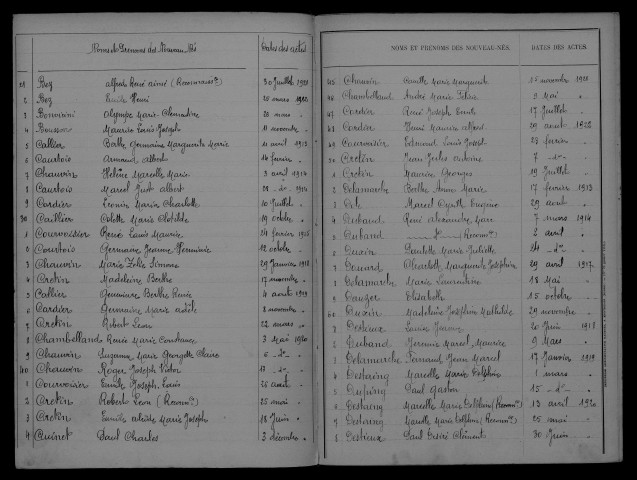 Noms et Prénoms des Nouveau-Nés Dates des actes
21 Bez alfred René aimé (Reconnaiss.ce) 30 Juillet 1921
2 Bez Emile Henri 25 mars 1922
3 Bonvicini Olympe Marie Clementine 20 mars "
4 Maurice Louis Joseph 11 novembre "
5 Callier Berthe Germaine Marguerite Marie 11 avril 1913
6 Courtois Armand Albert 14 février "
7 Chauvin Hélène Marcelle Marie 3 avril 1914
8 Courtois Marcel Just Albert 22 - do -
9 Cordier Leonie Marie Charlotte 10 Juillet "
30 Caillier Odette Marie Clotilde 19 octobre "
1 Courvoisier René Louis Maurice 24 février 1915
2 Courtois Germaine Jeanne 12 octobre "
3 Chauvin Marie Zélie Simone 29 Janvier 1918
4 Cretin Madeleine Berthe 17 novembre "
5 Callier Genevieve Berthe Renée 4 août 1919
6 Cordier Germaine Marie adèle 2 novembre "
7 Cretin Robert Leon 22 mars "
8 Chambelland Renée Marie Constance 3 Mai 1920
9 Chauvin Suzanne Marie Georgette Claire 6 - do -
40 Chauvin Roger Joseph Victor 13 - do -
1 Courvoisier Emile Joseph Louis 26 août "
2 Cretin Robert Leon (Reconn.ce) 25 mai "
3 Cretin Emile Marie Joseph 18 Juin "
4 Cuinet Paul Charles 3 décembre "
NOMS ET PRÉNOMS DES NOUVEAU-NÉS. DATES DES ACTES.
45 Chauvin Camille Marie Marguerite 15 novembre 1921
6 Chambelland André Marie Félicie 3 Mai "
7 Cordier René Joseph Emile 17 Juillet "
48 Cordier Henri Maurice alfred 29 août 1922
49 Courvoisier Edmond Louis Joseph 28 février "
50 Cretin Jean Jules Antoine 7 - do -
1 Cretin Maurice Georges 19 Juillet "
2 Delamarche Berthe Anna Marie 17 février 1913
3 Dole Marcel Cyrille Eugène 29 août "
4 Duband René Alexandre Marc 7 mars 1914
5 Duband - do - (Reconn.ce) 2 avril "
6 Paulette Marie Juliette 24 - do -
7 Charlotte Marguerite Joséphine 29 avril 1917
8 Delamarche Marie Laurentine 18 Mai "
9 Elisabeth 15 octobre "
60 Madeleine Josephine Mathilde 29 novembre "
1 Destieux Louise Jeanne 20 Juin 1918
2 Dubaud Germain Marcel Maurice 2 Mars "
3 Delamarche Fernand Jean Marcel 17 Janvier 1919
4 Marcelle Marie Delphine 1 mars "
5 Paul Gaston 15 - do -
6 Marcelle Marie Delphine (Reconn.ce) 13 avril 1920
7 Marcelle Marie Delphine (Reconn.ce) 25 mai "
8 Destieux Paul Désiré Clément 30 Juin "